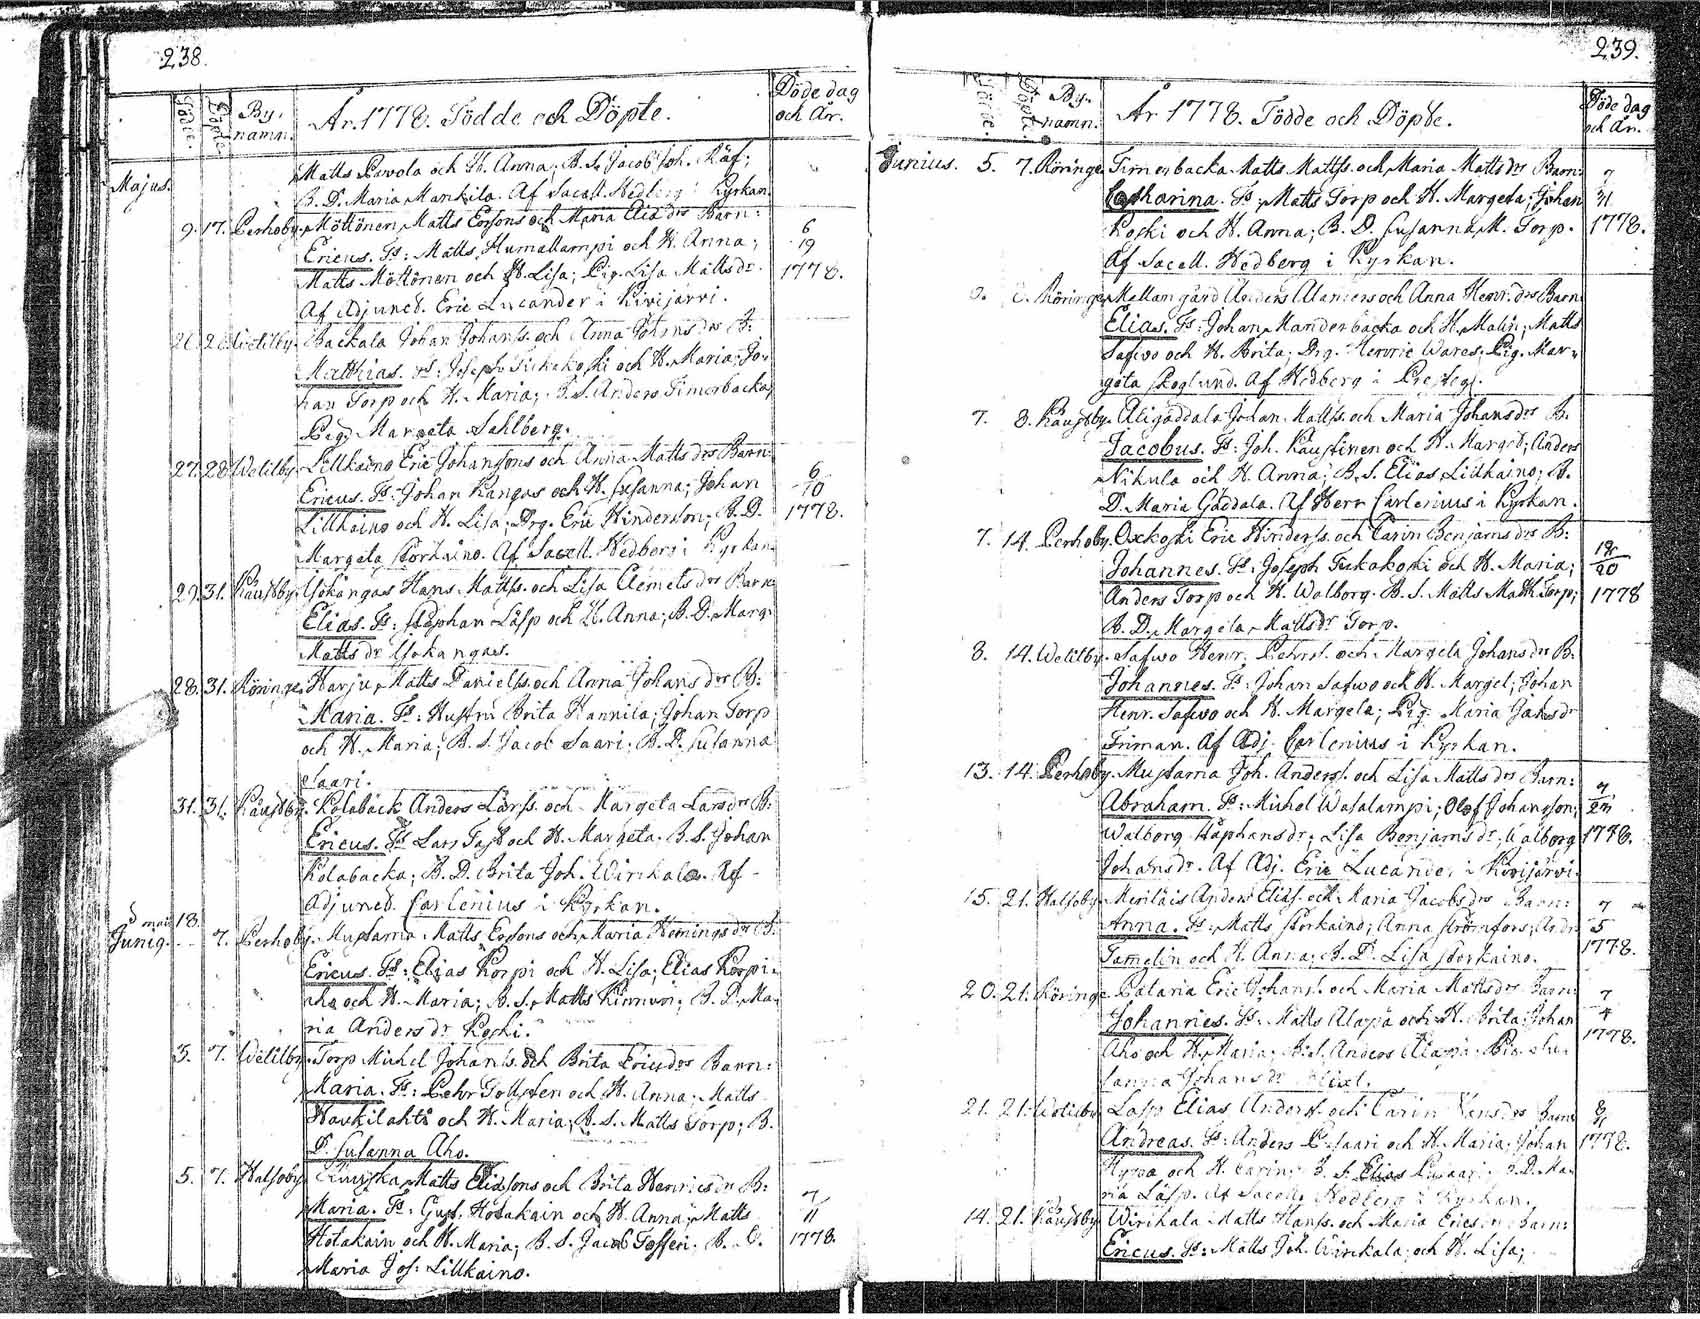 238.
Födde.
Döpte.
By-
namn.
År. 1778. Födde och Döpte.
Döde dag
och År.
Majus.
Matts Pavola och H. Anna; B. S. Jacob Joh. Räf;
B. D. Maria Mankila. Af Sacell. Hedberg i Kyrkan.
9. 17. Perhoby. Möttönen Matts Ersons och Maria Eliædr Barn:
Ericus. Fs: Matts Humallampi och H. Anna;
Matts Möttönen och H. Lisa; Pig. Lisa Mattsdr.
Af Adjunct. Eric Lucander i Kivijärvi.
6
19
1778.
Wetilby. Backala Johan Johanss. och Anna Johansdr B:
Matthias. Fs: Joseph Tuckakoski och H. Maria; Jo-
han Torp och H. Maria; B. S. Anders Timerbacka,
Pig. Margeta Sahlberg.
27. 28. Wetilby. Lillkaino Eric Johansons och Anna Mattsdr Barn:
Ericus. Fs: Johan Kangas och H. Susanna; Johan
Lillkaino och H. Lisa; Drg. Eric Hinderson; B. D.
Margeta Storkaino. Af Sacell. Hedberg i Kyrkan.
6
10
1778.
29. 31. Kaustby. Ysokangas Hans Mattss. och Lisa Clemetsdr Barn:
Elias. Fs: Stephan Läsp och H. Anna; B. D. Marg:
Mattsdr Ysokangas.
28. 31. Röringe. Harju Matts Danielss. och Anna Johansdr B:
Maria. Fs: Hustru Brita Hannila; Johan Torp
och H. Maria; B. S. Jacob Saari; B. D. Susanna
Saari.
31. 31. Kaustby. Kolabäck Anders Larss. och Margeta Larsdr B:
Ericus. Fs: Lars Tast och H. Margeta. B. S. Johan
Kolabacka; B. D. Brita Joh. Wirkala. Af
Adjunct. Carlenius i Kyrkan.
Maji 18.
Junius. 7. Perhoby. Mustama Matts Ersons och Maria Hemingsdr B.
Ericus. Fs: Elias Korpi och H. Lisa; Elias Korpi-
aho och H. Maria; B. S. Matts Kinnun; B. D. Ma-
ria Andersdr Koski.
3. 7. Wetilby. Torp Michel Johanss. och Brita Ericsdr Barn:
Maria. Fs: Pehr Gullsten och H. Anna; Matts
Haukilahti och H. Maria; B. S. Matts Torp; B.
D. Susanna Aho.
5. 7. Halsoby. Matts Eliæsons och Brita Henricsdr B:
Maria. Fs: Gust. Hotakain och H. Anna; Matts
Hotakain och H. Maria; B. S. Jacob Tofferi. B. D.
Maria Jos: Lillkaino.
7
11
1778.
239.
Födde.
Döpte.
By-
namn.
År 1778. Födde och Döpte.
Döde dag
och År.
Junius. 5. 7. Röringe. Timerbacka Matts Mattss. och Maria Mattsdr Barn:
Catharina. Fs: Matts Torp och H. Margeta; Johan
Koski och H. Anna; B. D. Susanna M. Torp.
Af Sacell. Hedberg i Kyrkan.
7
11
1778.
Röringe. Mellangård Anders Anderss och Anna Henr.dr Barn
Elias. Fs: Johan Manderbacka och H. Malin; Matts
Safwo och H. Brita; Drg. Henric Wares; Pig. Mar-
geta Skoglund. Af Hedberg i Prestegl.
7. 8. Kaustby. Aligäddala Johan Mattss. och Maria Johansdr B.
Jacobus. Fs: Joh. Kaustinen och H. Marget; Anders
Nikula och H. Anna; B. S. Elias Lillkaino; B.
D. Maria Gäddala. Af Herr Carlenius i Kyrkan.
7. 14. Perhoby. Oxkoski Eric Hinderss. och Carin Benjamsdr B:
Johannes. Fs: Joseph Tuckakoski och H. Maria;
Anders Torp och H. Walborg. B. S. Matts Matth Torp;
B. D. Margeta Mattsdr Torp.
18
20
1778
8. 14. Wetilby. Safwo Henr. Pehrss. och Margeta Johansdr B.
Johannes. Fs: Johan Safwo och H. Marget; Johan
Henr. Safwo och H. Margeta; Pig. Maria Jacksdr
Friman. Af Adj. Carlenius i Kyrkan.
13. 14. Perhoby. Mustama Joh. Anderss. och Lisa Mattsdr Barn:
Abraham. Fs: Michel Wasalampi; Olof Johansson;
Walborg Staphansdr; Lisa Benjamsdr; Walborg
Johansdr. Af Adj. Eric Lucander i Kivijärvi.
7
27
1778.
15. 21. Halsoby. Meriläis Anders Eliæss. och Maria Jacobsdr Barn:
Anna. Fs: Matts Storkaino; Anna Strömfors; Andr.
Tamelin och H. Anna; B. D. Lisa Storkaino.
7
5
1778.
20. 21. Röringe. Pataria Eric Johanss. och Maria Mattsdr Barn:
Johannes. Fs: Matts Alapä och H. Brita; Johan
Aho och H. Maria; B. S. Anders Alapä; Pig. Su-
sanna Johansdr
7
4
1778.
21. 21. Wetilby. Läsp Elias Anderss. och Carin Hansdr Barn
Andreas. Fs: Anders P. saari och H. Maria; Johan
och H. Carin; B. S. Elias P. saari; B. D. Ma-
ria Läsp. Af Sacell. Hedberg i Kyrkan.
8
11
1778.
14. 21. Kaustby. Wirkala Matts Hanss. och Maria Ericsdr Barn:
Ericus. Fs: Matts Joh. Wirkala och H. Lisa;